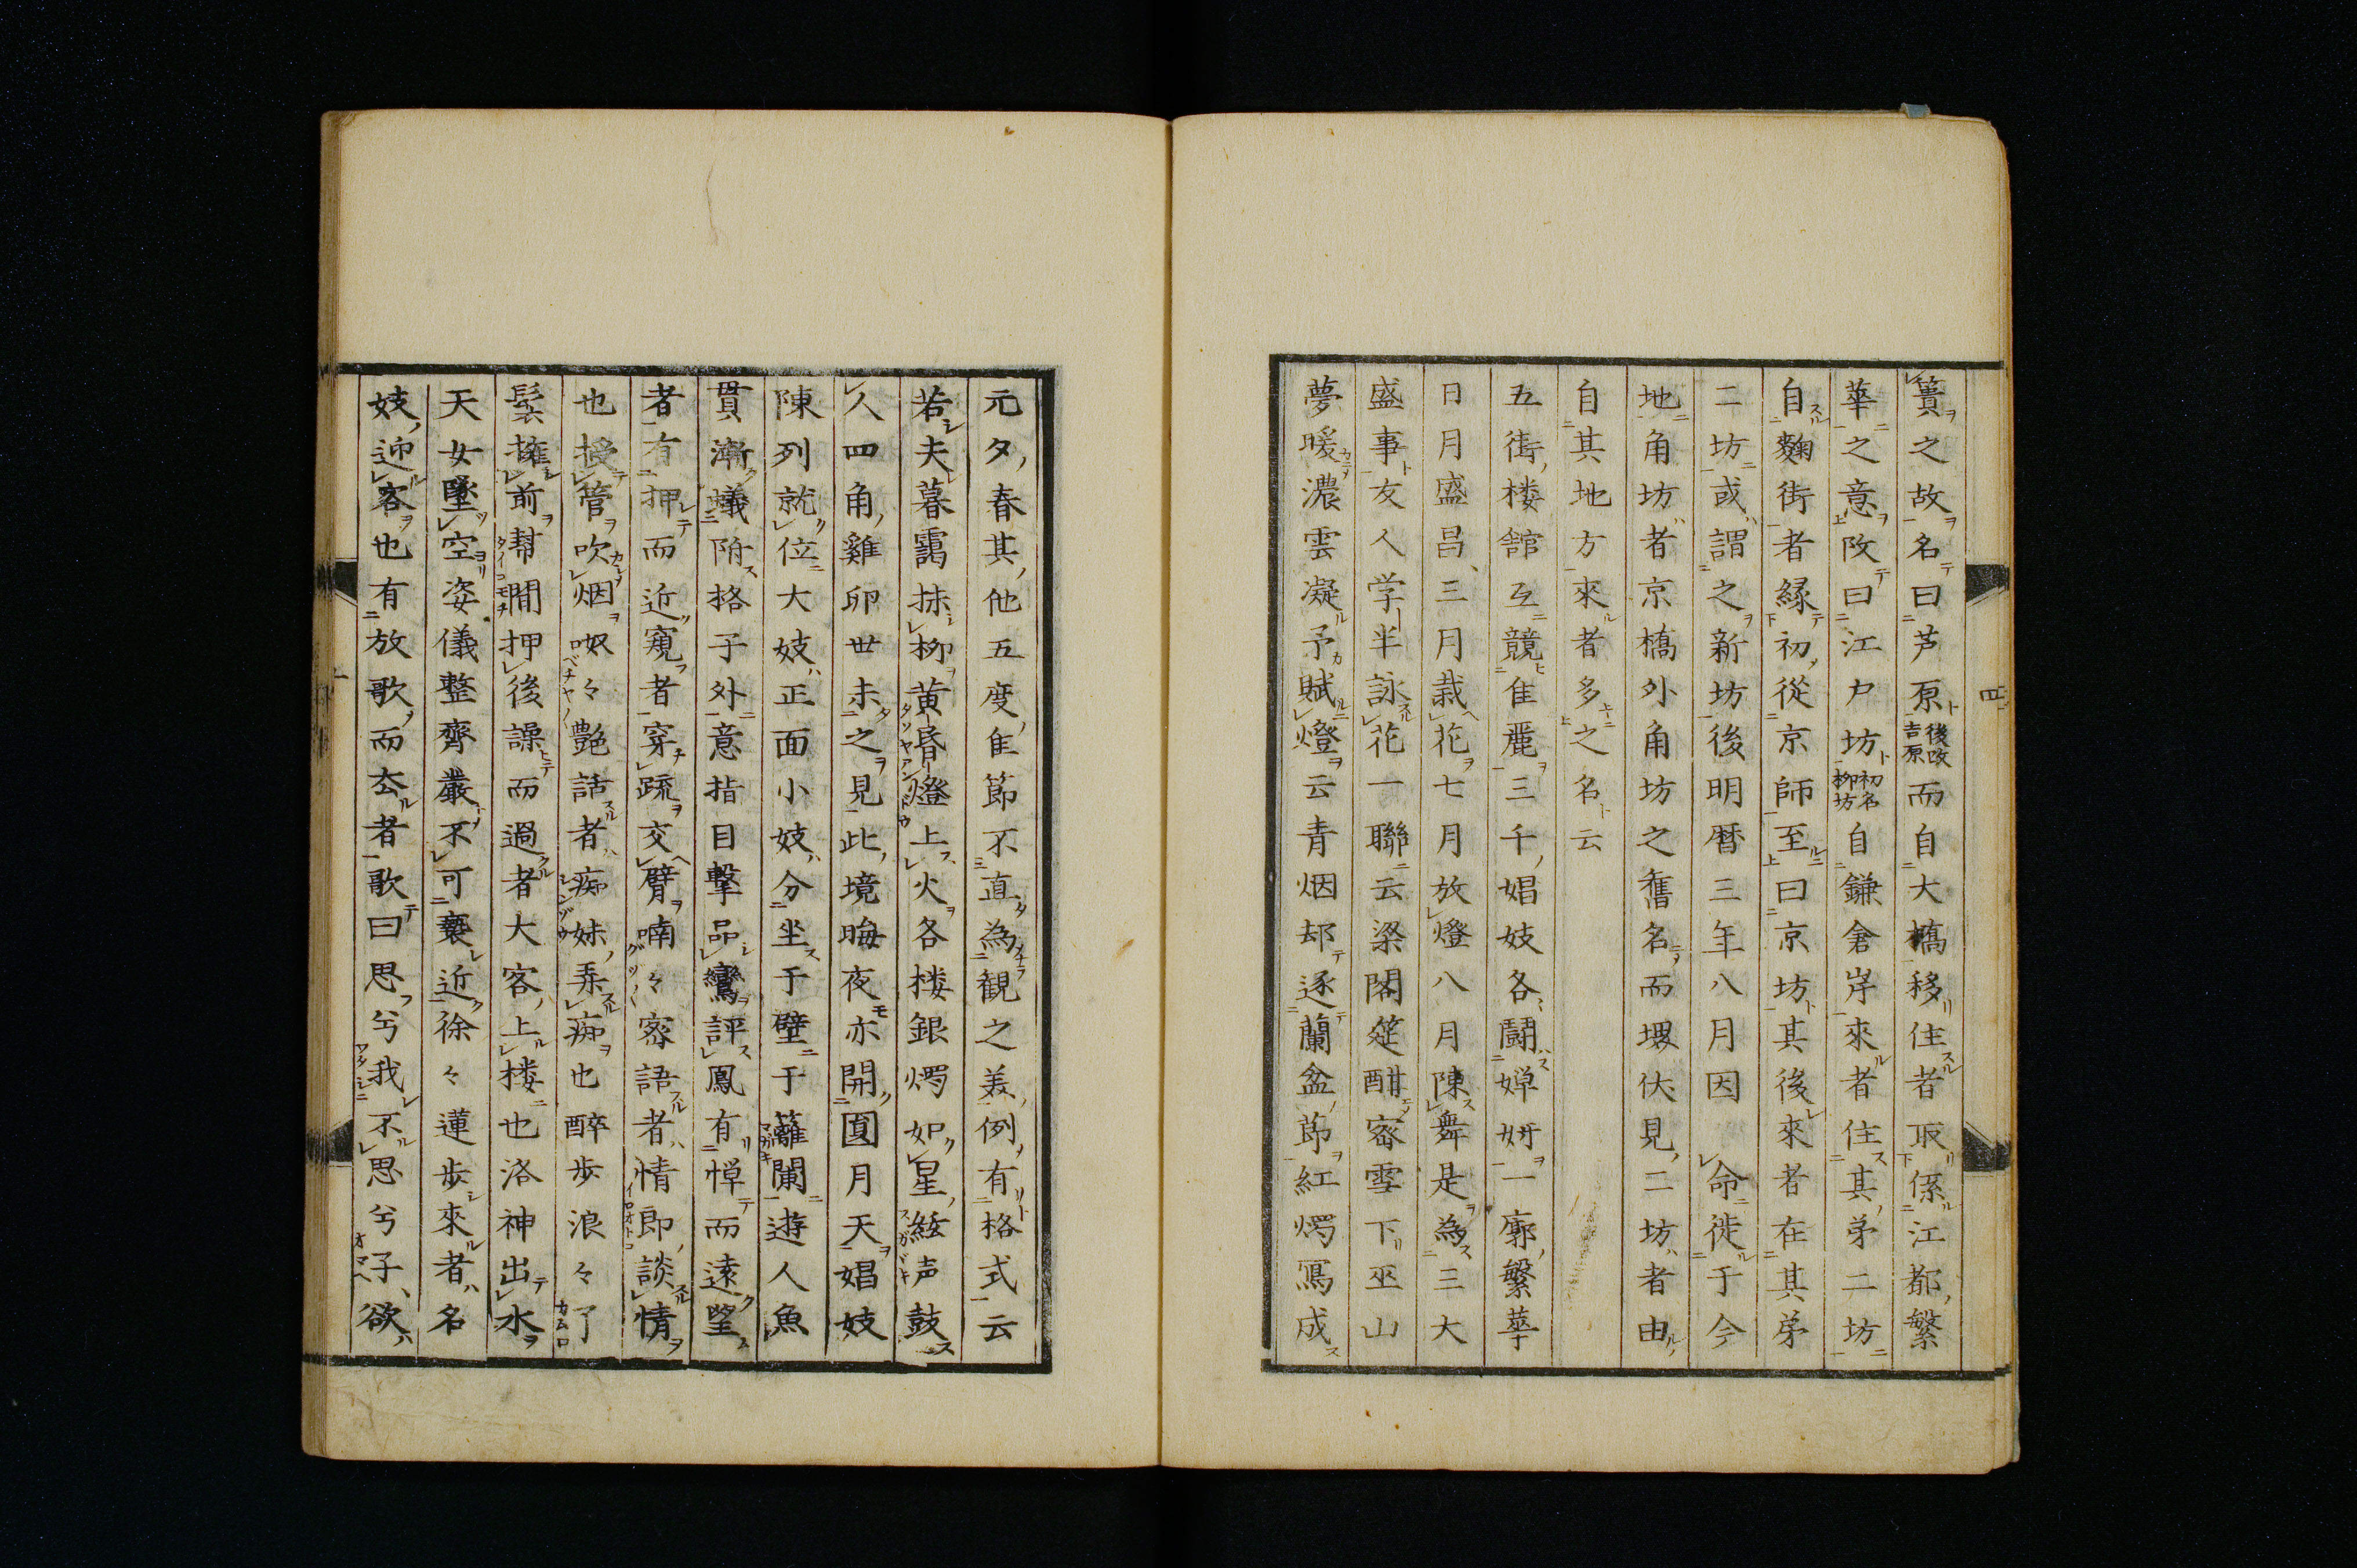 簀之故名曰芦原後改吉原而自大橋移住者取係江都繁
華之意改曰江戸坊初名柳坊自鎌倉岸來者住其第二坊
自麹街者縁初從京師至曰京坊其後來者在其第
二坊或謂之新坊後明暦三年八月因命徙于今
地角坊者京橋外角坊之舊名而堺伏見二坊者由
自其地方來者多之名云
五街楼舘互競佳麗三千娼妓各闘嬋妍一廓繁華
日月盛昌三月栽花七月放燈八月陳舞是為三大
盛事友人学半詠花一聯云梁閣筵酣密雪下巫山
夢暖濃雲凝予賦燈云青烟却逐蘭盆節紅燭寫成
四
元夕春其他五度佳節不直為観之美例有格式云
若夫暮靄抹柳黄昏燈上火各楼銀燭如星絃声鼓
人四角雞卵世未之見此境晦夜亦開圓月天娼妓
陳列就位大妓正面小妓分坐于壁于籬闌遊人魚
貫漸蟻附格子外意指目撃品鸞評鳳有憚而遠望
者有押而近窺者穿疏交臂喃々密語者情郎談情
也授管吹烟呶々艶話者痴妹弄痴也醉歩浪々了
鬟擁前幇間押後譟而過者大客上楼也洛神出水
天女墜空姿儀整齊嚴不可褻近徐々蓮歩來者名
妓迎客也有放歌而去者歌曰思兮我不思兮子欲